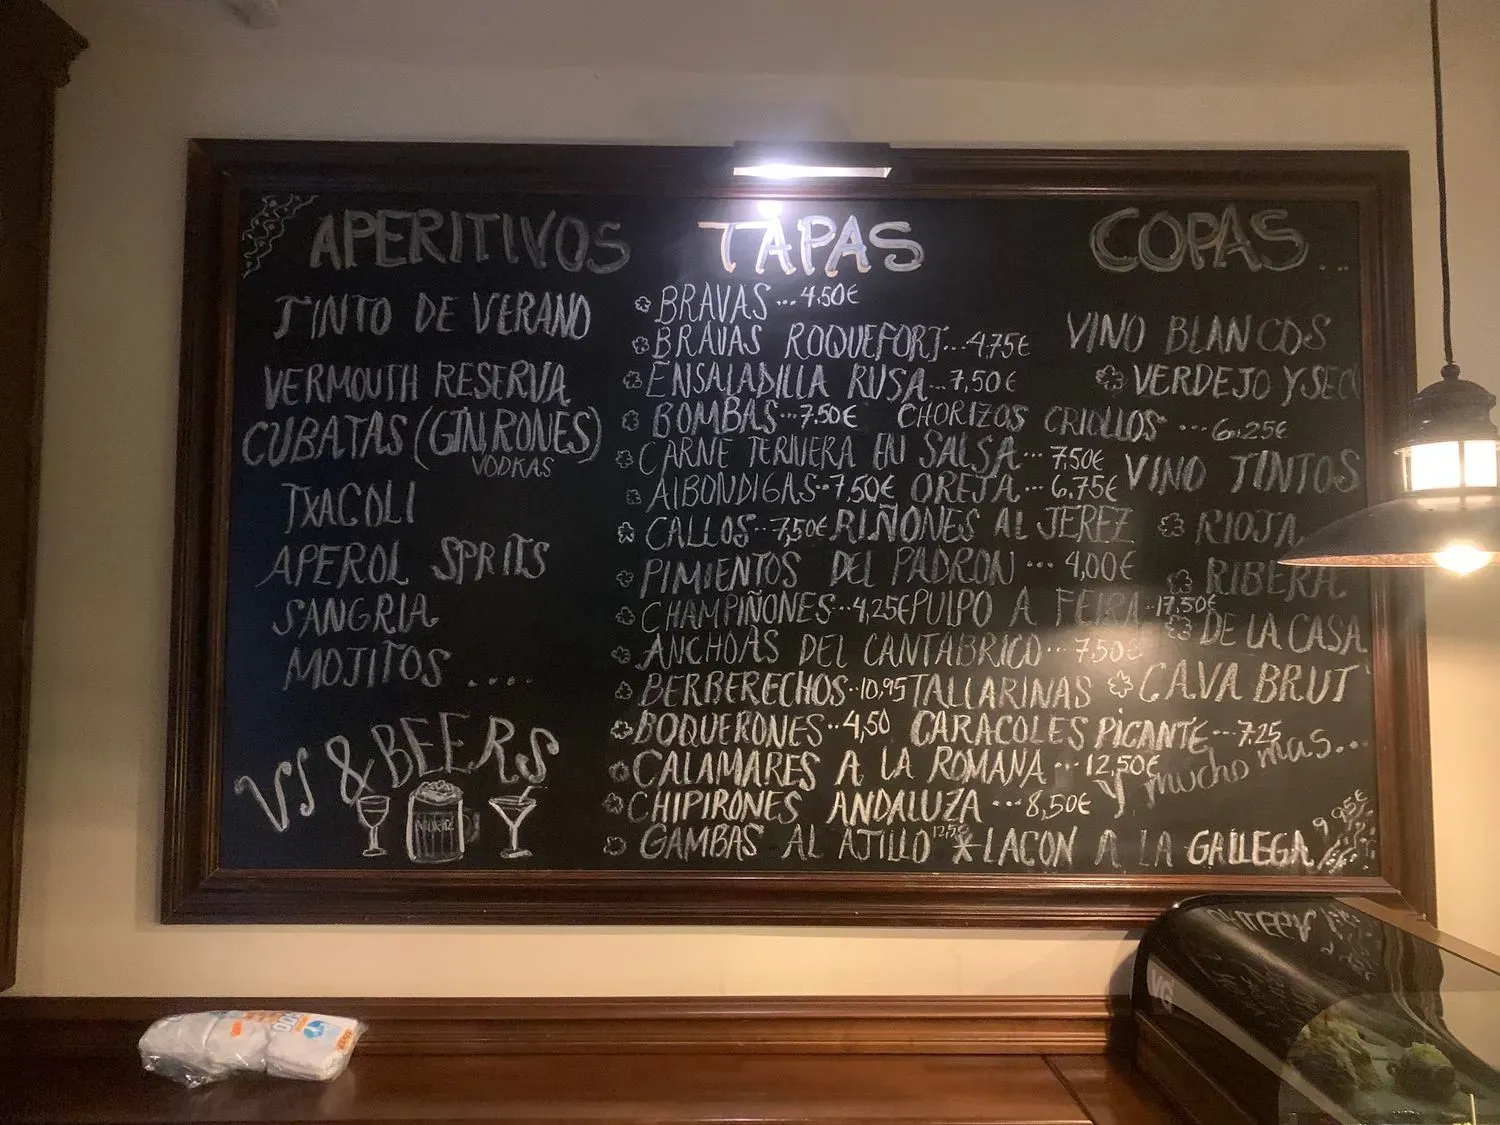 APERITIVOS
TINTO DE VERANO
VERMOUTH RESERVA
CUBATAS (GIN, RONES)
VODKAS
TXACOLI
APEROL SPRITS
SANGRIA
MOJITOS ....
& BEERS
TAPAS
BRAVAS ... 4,50€
BRAVAS ROQUEFORT... 4,75€
ENSALADILLA RUSA... 7,50€
BOMBAS... 7,50€ CHORIZOS CRIOLLOS ... 6,25€
CARNE TERNERA EN SALSA... 7,50€
ALBONDIGAS.. 7,50€ OREJA... 6,75€
CALLOS.. 7,50€ RIÑONES AL JEREZ
PIMIENTOS DEL PADRON ... 4,00€
CHAMPIÑONES.. 4,25€ PULPO A FEIRA ..17,50€
ANCHOAS DEL CANTABRICO... 7,50€
BERBERECHOS.. 10,95 TALLARINAS
BOQUERONES.. 4,50 CARACOLES PICANTE... 7.25
CALAMARES A LA ROMANA ... 12,50€
CHIPIRONES ANDALUZA ... 8,50€
GAMBAS AL AJILLO LACON A LA GALLEGA 9,95€
COPAS...
VINO BLANCOS
VERDEJO Y SECO
VINO TINTOS
RIOJA
RIBERA
DE LA CASA
CAVA BRUT
y mucho mas...
VG